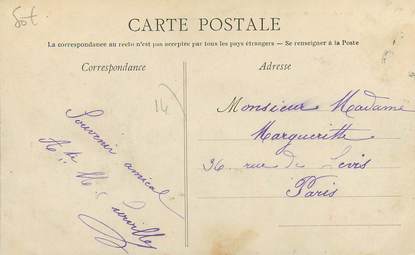 Sot
CARTE POSTALE
La correspondance au recto n'est pas acceptée par tous les pays étrangers — Se renseigner à la Poste
Correspondance
Adresse
14
Souvenir amical
Monsieur Madame
Margueritte
36 rue de Levis
Paris